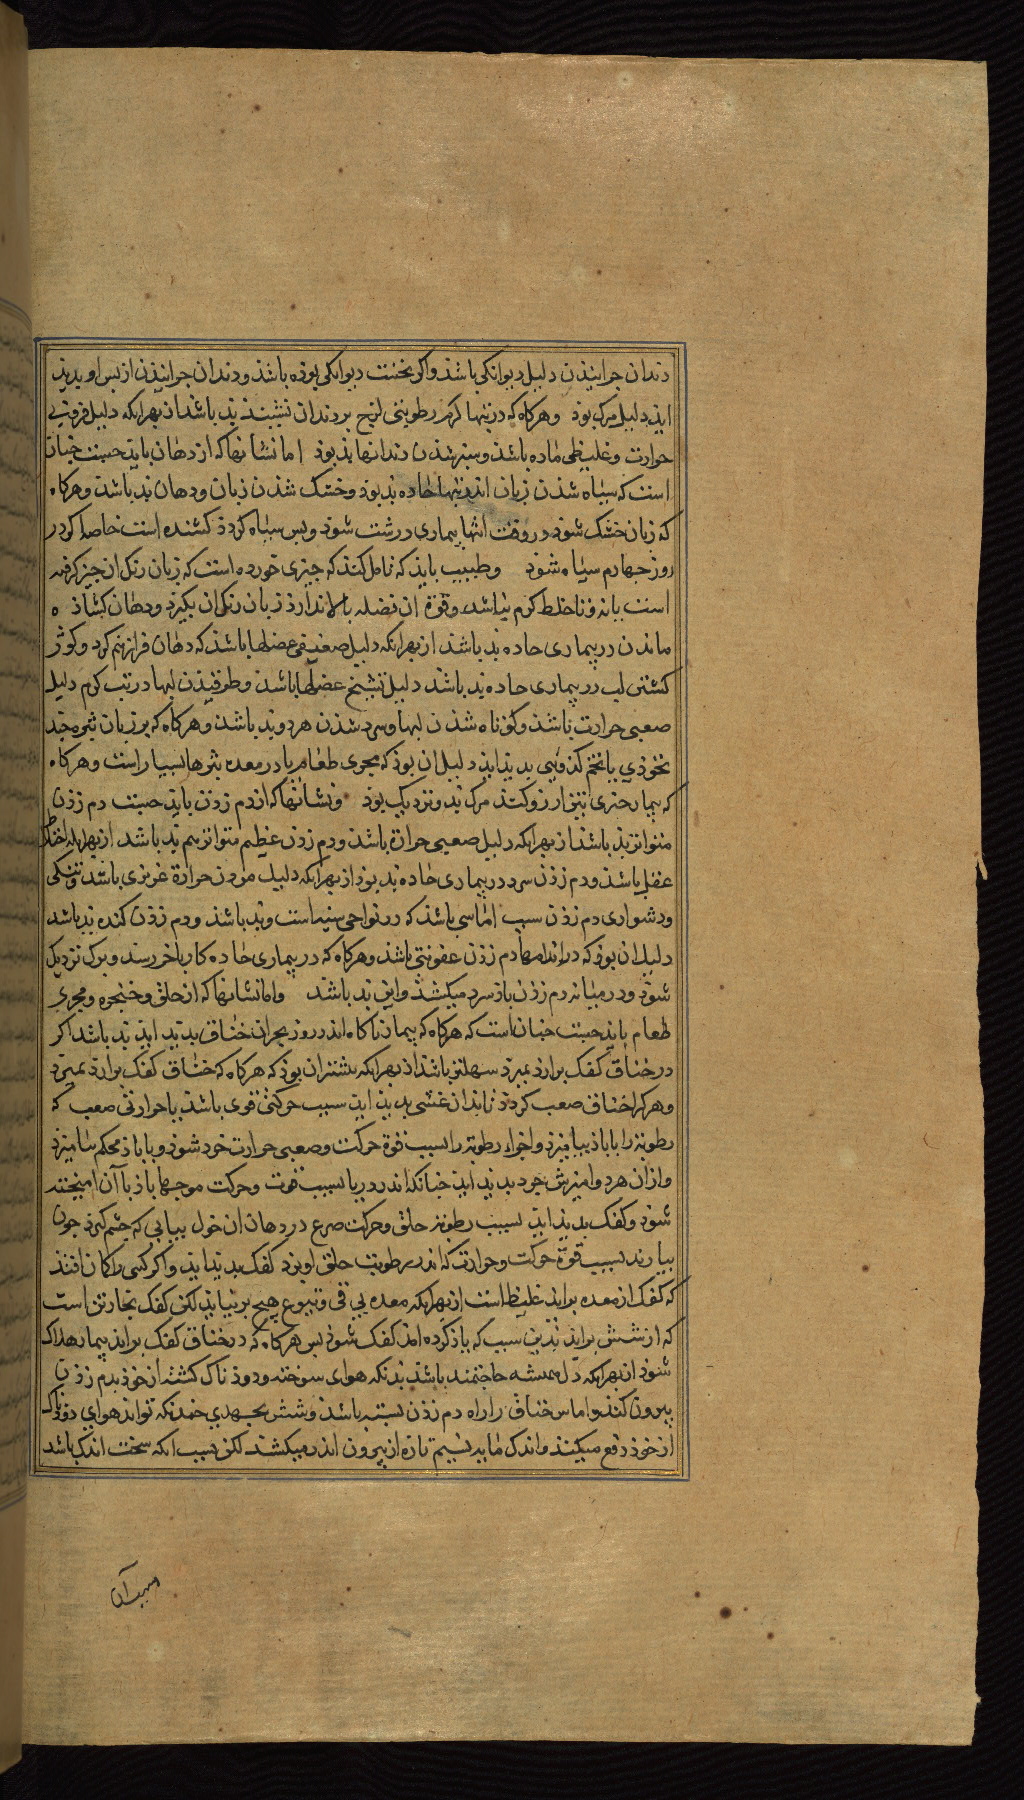 دندان جرانیذن دلیل دیوانکی باشذ واکر نخست دیوانکی بوده باشذ ودندان جرانیذن از بس او بدید
ایذ دلیل مرک بوذ وهرکاه که در تبهاء کرم رطوبتی لزج بر دندان نشیند بد باشد از بهر انکه دلیل فزونی
حرارت وغلیظی ماده باشذ وسبز شدن دندانها بد بوذ اما نشانها که از دهان بایذ جست جنان
است که سیاه شدن زبان اندر تبهاء حاده بد بوذ وخشک شذن زبان ودهان بد باشذ وهرکاه
که زبان خشک شوذ در وقت انتها بیماری درشت شوذ وبس سیاه کردذ کشنده است خاصه کر در
روز جهارم سیاه شوذ وطبیب بایذ که تامل کند که جیزی خورده است که زبان رنک ان جیز کرفته
است یا نه وتا خلط کرم نباشد وقوة ان فضله بالا ندارذ زبان رنک ان نکیرذ ودهان کشاذه
ماندن در بیماری حاده بد باشذ از بهر انکه دلیل ضعیفی عضلها باشذ که دهان فراز هم کرد وکوژ
کشتن لب در بیماری حاده بد باشذ دلیل تشنج عضلها باشذ وطرقیذن لبها در تب کرم دلیل
صعبی حرارت باشذ وکوتاه شذن لبها وسرد شذن هر دو بد باشذ وهرکاه که بر زبان بثره جند
نخوذی یا تخم کذویی بدیذ ایذ دلیل ان بوذ که مجری طعام یا در معده بثرها بسیار است وهرکاه
که بیمار جیزی تیز ارزو کند مرک بد ونزدیک بوذ ونشانها که از دم زدن بایذ جست دم زدن
متواتر بذ باشذ از بهر انکه دلیل صعبی حرارة باشذ ودم زدن عظیم متواتر هم بد باشد از بهر انکه اختلاط
عقل باشذ ودم زدن سرد در بیماری حاده بد بوذ از بهر انکه دلیل مردن حرارة غریزی باشذ وتنکی
ودشواری دم زدن سبب اماسی باشذ که در نواحی سینه است وبد باشذ ودم زدن کنده بد باشد
دلیل ان بوذ که در اندامهاء دم زذن عفونتی باشذ وهرکاه که در بیماری حاده کار باخر رسد ومرک نزدیک
شوذ ودر میانه دم زذن باذ سرد میکشذ واین بد باشد واما نشانها که از حلق وحنجره ومجری
طعام بایذ جست جنان است که هرکاه که بیمار ناکاه اندر روز بحران خناق بدید ایذ بد باشذ اکر
در خناق کفک برارذ نمیرذ سهلتر باشذ از بهر انکه بیشتر ان بوذ که هرکاه که خناق کفک برارذ نمیرذ
وهرکرا خناق صعب کردذ تا بدان غشی بدید ایذ سبب حرکتی قوی باشذ یا حرارتی صعب که
رطوبة را با باذ بیامیزذ واجزاء رطوبة را بسبب قوة حرکت وصعبی حرارت خرد شوذ وبا باذ محکم بیامیزذ
واز ان هر دو امیزش جرد بدید ایذ جنانکه اندر دریا بسبب قوت وحرکت موجها باذ با آن امیخته
شوذ وکفک بدیذ ایذ بسبب رطوبة حلق وحرکت صرع در دهان ان خول بیابی که خشم کیرذ جون
بیارند بسبب قوة حرکت وحرارت که اندر رطوبت حلق او بوذ کفک بدید ایذ واکر کسی را کان افتذ
که کفک از معده براید غلیظ است از بهر انکه معده بی قی وتهوع هیچ بر نیایذ لکن کفک بخارتن است
که از شش برایذ بذین سبب که یاذ کرده امذ کفک شوذ بس هرکاه که در خناق کفک براید بیمار هلاک
شوذ از بهر انکه دل همیشه حاجتمند باشذ بذنکه هوای سوخته ودود ناک کشته از خوذ بدم زذن
بیرون کنذ واماس خناق را راه دم زذن بسته باشذ وشش بجهدی جندنکه تواند هوای دودناک
از خوذ دفع میکند واندک مایه نسیم تازه از بیرون اندر میکشذ لکن سبب انکه سخت اندک باشد
وسبب آن